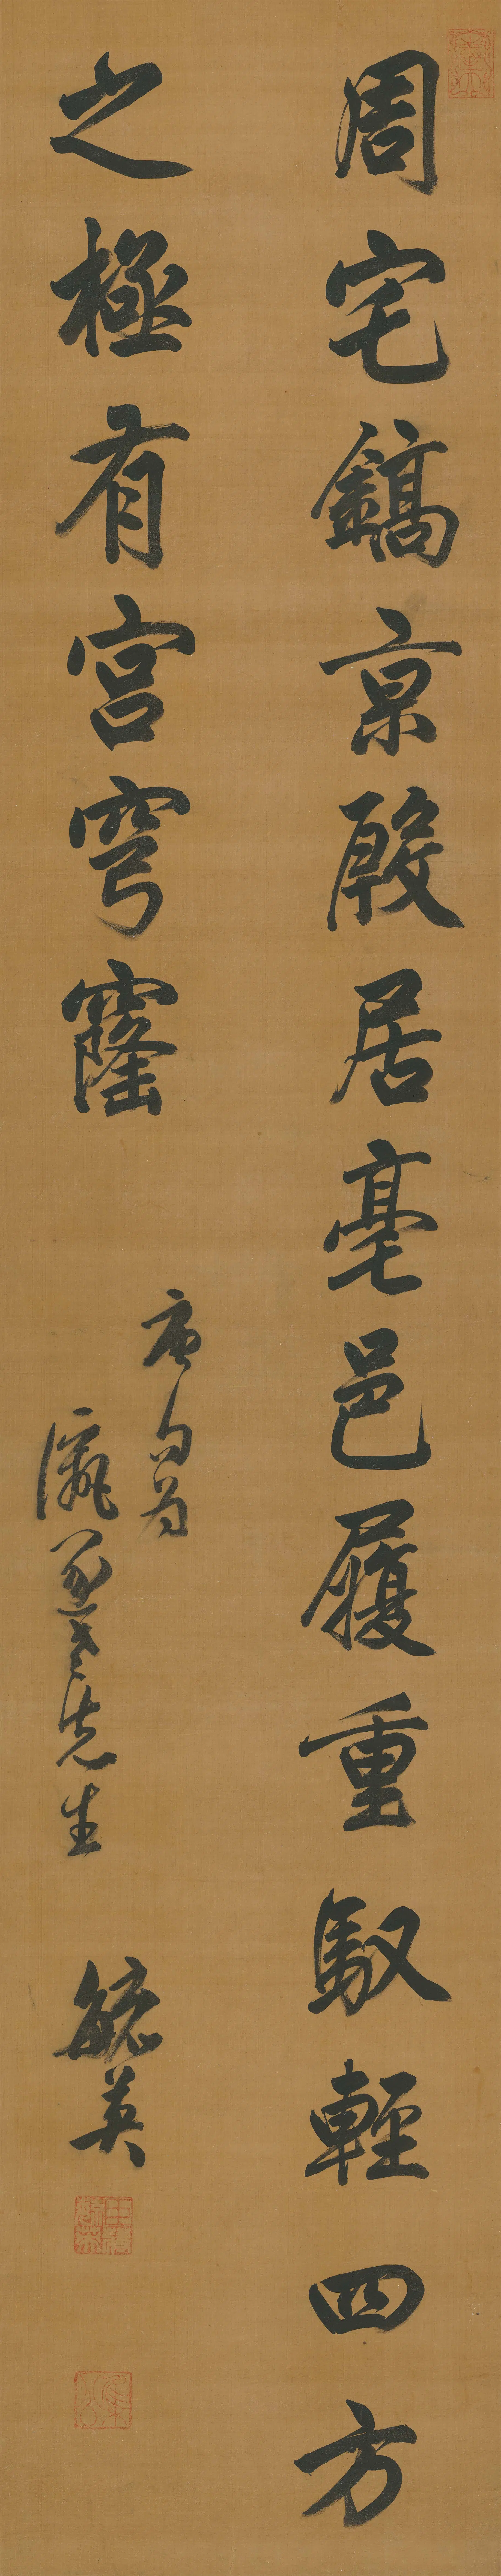 周宅鎬京殷居亳邑履重馭輕四方
之極有宮穹窿
唐句為
瀛選老先生
毓英